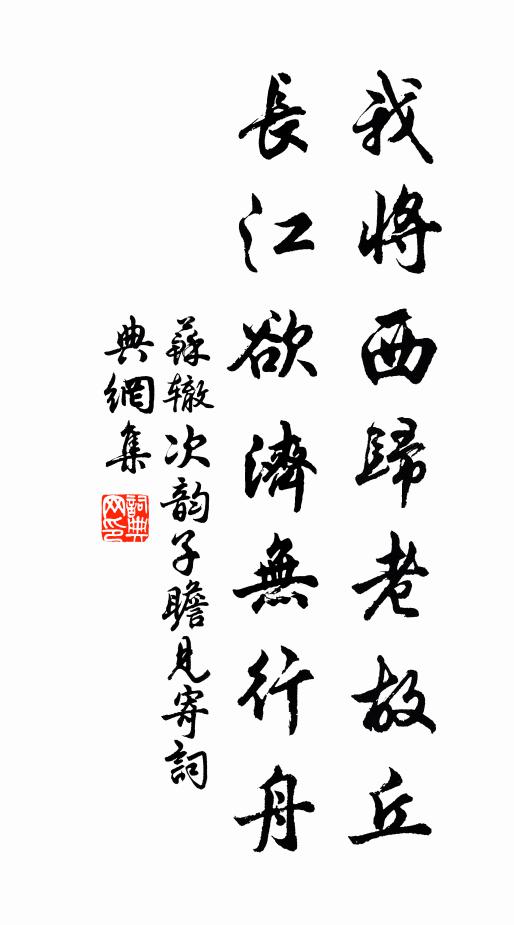 我將西歸老故丘
長江欲濟無行舟
蘇轍次韵子瞻見寄詞
典網集
詞典网印